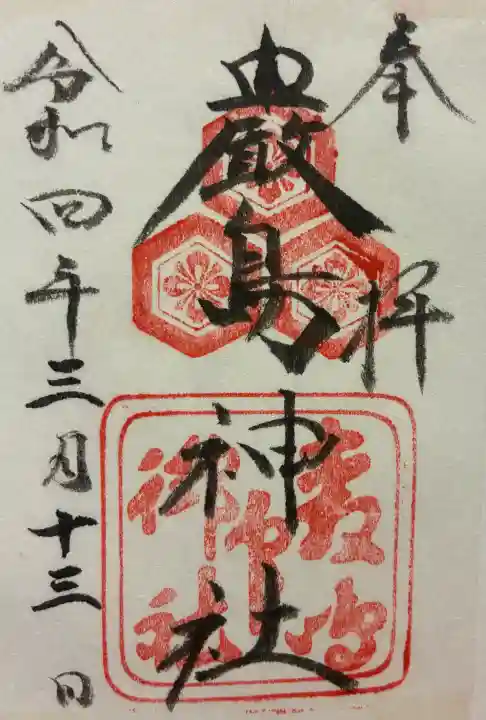 奉拝
厳島神社
令和四年三月十三日